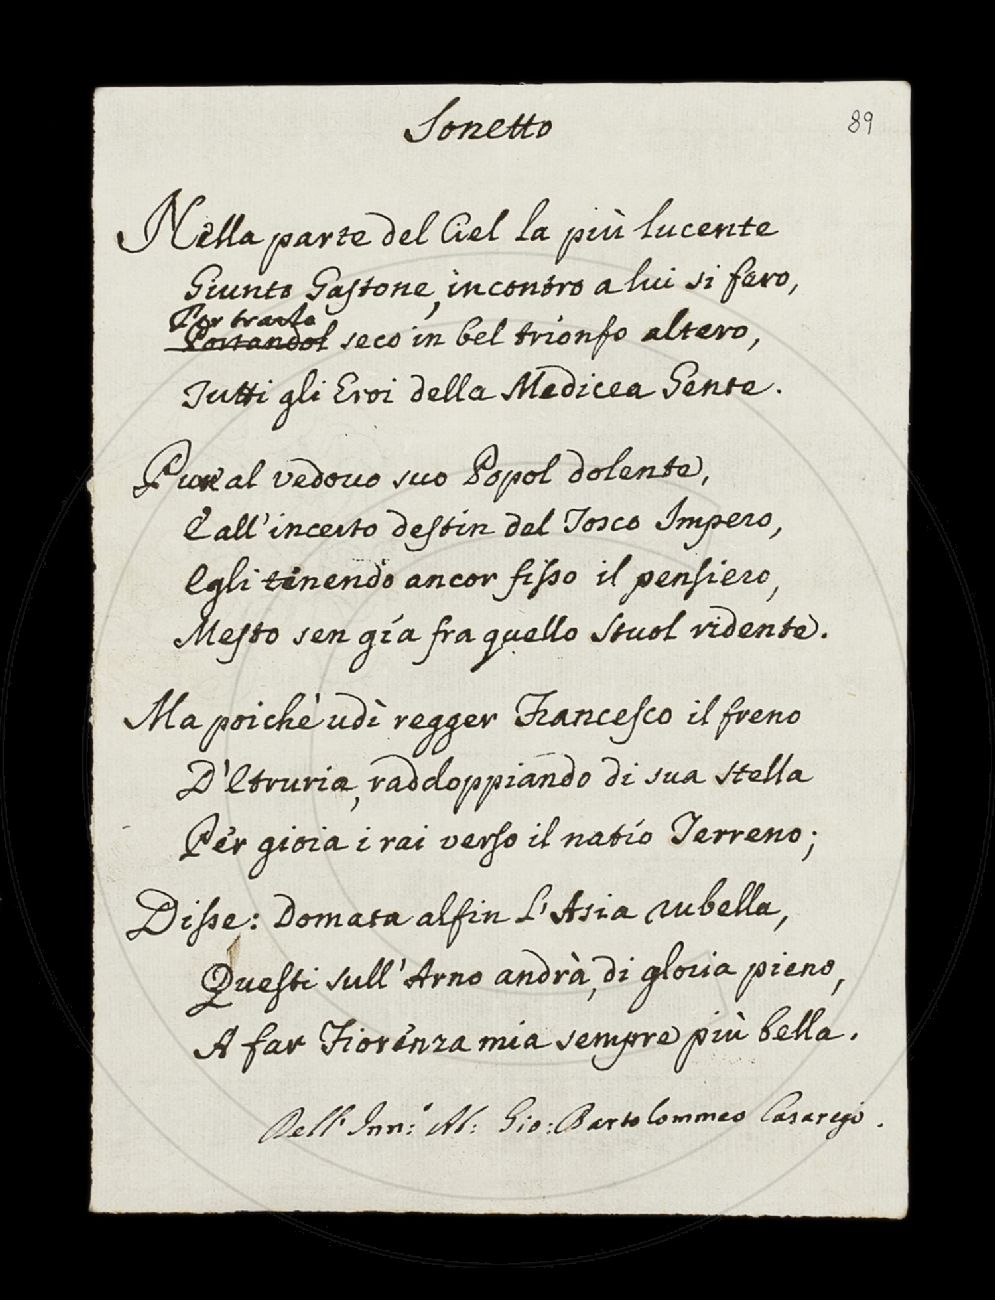 Sonetto
89
Nella parte del Ciel la più lucente
Giunto Gastone, incontro a lui si fero,
Per trarlo
Portandol seco in bel trionfo altero,
Tutti gli Eroi della Medicea Gente.
Pur al vedovo suo Popol dolente,
E all'incerto destin del Tosco Impero,
Egli tenendo ancor fisso il pensiero,
Mesto sen gía fra quello Stuol ridente.
Ma poichè udì regger Francesco il freno
D'Etruria, raddoppiando di sua stella
Per gioia i rai verso il natío Terreno;
Disse: Domata alfin l'Asia rubella,
Questi sull'Arno andrà, di gloria pieno,
A far Fiorenza mia sempre più bella.
Dell' Inn: Ab: Gio: Bartolommeo Casaregi.